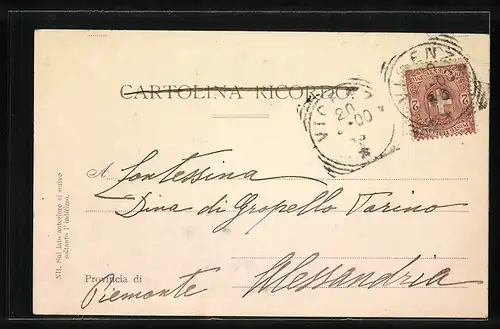 CARTOLINA RICORDO
VICENZA
20
00
VICENZA
2 2
A Contessina
Dina di Gropello Tarino
Provincia di Alessandria
Piemonte
NB. Sul lato anteriore si scrive
soltanto l' indirizzo.